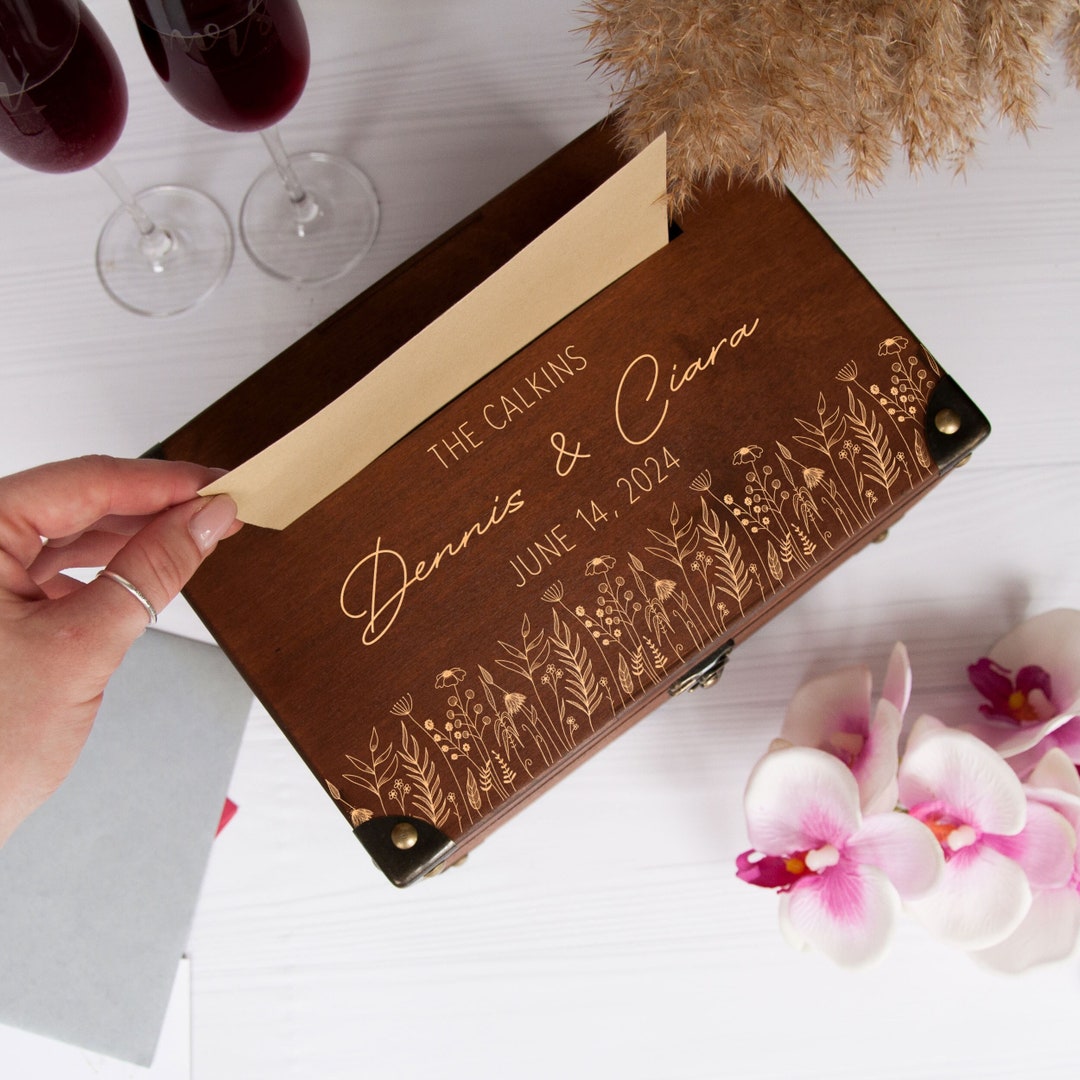 THE CALKINS
Dennis & Ciara
JUNE 14, 2024